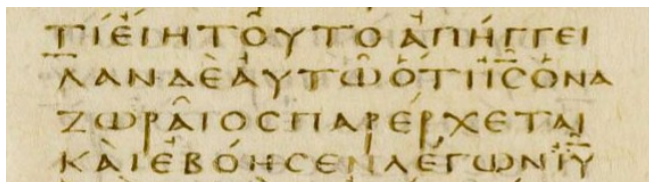 ΤΙἘΊΗΤΟΥ͂ΤΟἈΠΉΓΓΕΙ
ΛΑΝΔῈἈΥΤΩ͂ὍΤΙΙ̅Ϲ̅ὉΝΑ
ΖΩΡΑΙ͂ΟϹΠΑΡΈΡΧΕΤΑΙ
ΚΑῚἘΒΌΗϹΕΝΛΈΓΩΝΙ̅Υ̅